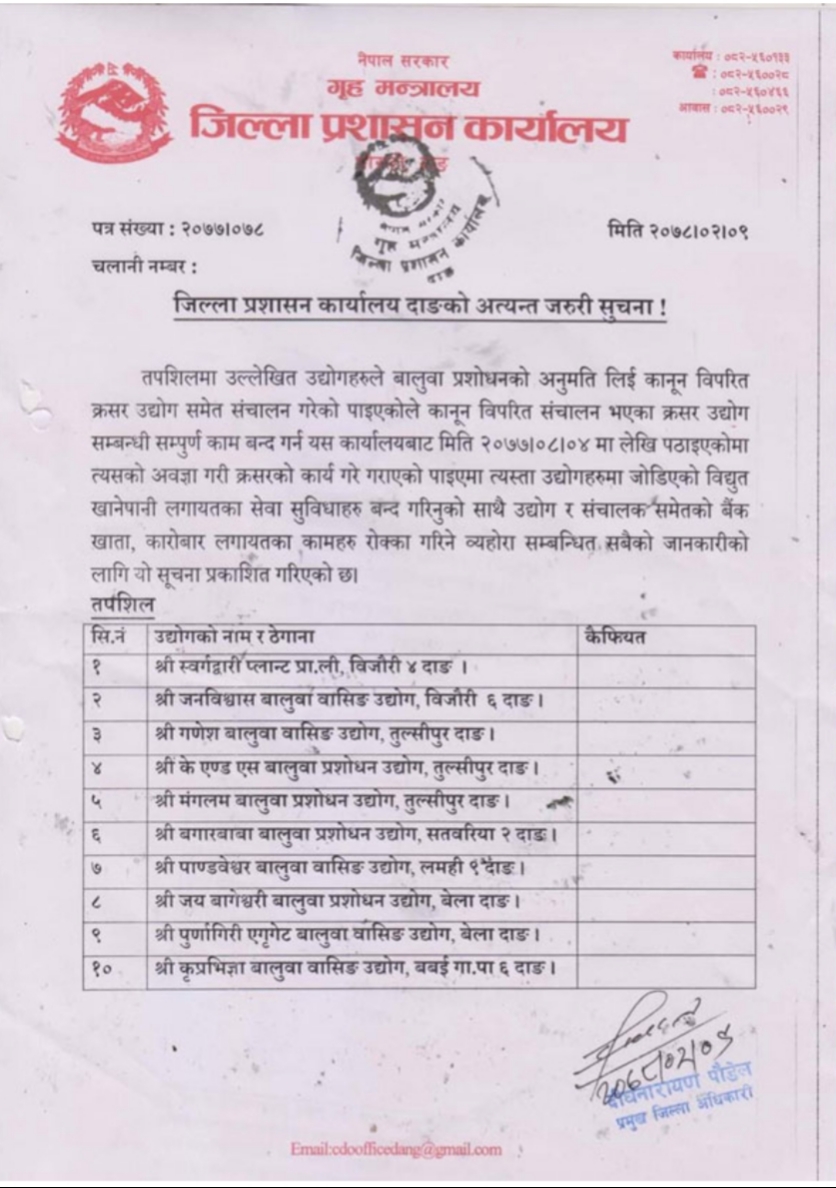 नेपाल सरकार
गृह मन्त्रालय
जिल्ला प्रशासन कार्यालय
कार्यालय : ०८२-५६०१३३
: ०८२-५६००२८
: ०८२-५६०४६६
आवास : ०८२-५६००२९
गृह मन्त्रालय
जिल्ला प्रशासन कार्यालय
दाङ
पत्र संख्या : २०७७।०७८
मिति २०७८।०२।०९
चलानी नम्बर :
जिल्ला प्रशासन कार्यालय दाङको अत्यन्त जरुरी सुचना !
तपशिलमा उल्लेखित उद्योगहरुले बालुवा प्रशोधनको अनुमति लिई कानून विपरित
क्रसर उद्योग समेत संचालन गरेको पाइएकोले कानून विपरित संचालन भएका क्रसर उद्योग
सम्बन्धी सम्पुर्ण काम बन्द गर्न यस कार्यालयबाट मिति २०७७।०८।०४ मा लेखि पठाइएकोमा
त्यसको अवज्ञा गरी क्रसरको कार्य गरे गराएको पाइएमा त्यस्ता उद्योगहरुमा जोडिएको विद्युत
खानेपानी लगायतका सेवा सुविधाहरु बन्द गरिनुको साथै उद्योग र संचालक समेतको बैंक
खाता, कारोबार लगायतका कामहरु रोक्का गरिने व्यहोरा सम्बन्धित सबैको जानकारीको
लागि यो सूचना प्रकाशित गरिएको छ।
तपशिल
सि.नं उद्योगको नाम र ठेगाना कैफियत
१ श्री स्वर्गद्वारी प्लान्ट प्रा.ली, विजौरी ४ दाङ ।
२ श्री जनविश्वास बालुवा वासिङ उद्योग, विजौरी ६ दाङ ।
३ श्री गणेश बालुवा वासिङ उद्योग, तुल्सीपुर दाङ ।
४ श्री के एण्ड एस बालुवा प्रशोधन उद्योग, तुल्सीपुर दाङ ।
५ श्री मंगलम बालुवा प्रशोधन उद्योग, तुल्सीपुर दाङ ।
६ श्री बगारबाबा बालुवा प्रशोधन उद्योग, सतवरिया २ दाङ ।
७ श्री पाण्डवेश्वर बालुवा वासिङ उद्योग, लमही ९ दाङ ।
८ श्री जय बागेश्वरी बालुवा प्रशोधन उद्योग, बेला दाङ ।
९ श्री पुर्णागिरी एगृगेट बालुवा वासिङ उद्योग, बेला दाङ ।
१० श्री कृप्रभिज्ञा बालुवा वासिङ उद्योग, बबई गा.पा ६ दाङ ।
२०७८।०२।०९
पौडेल
प्रमुख जिल्ला अधिकारी
Email:cdoofficedang@gmail.com